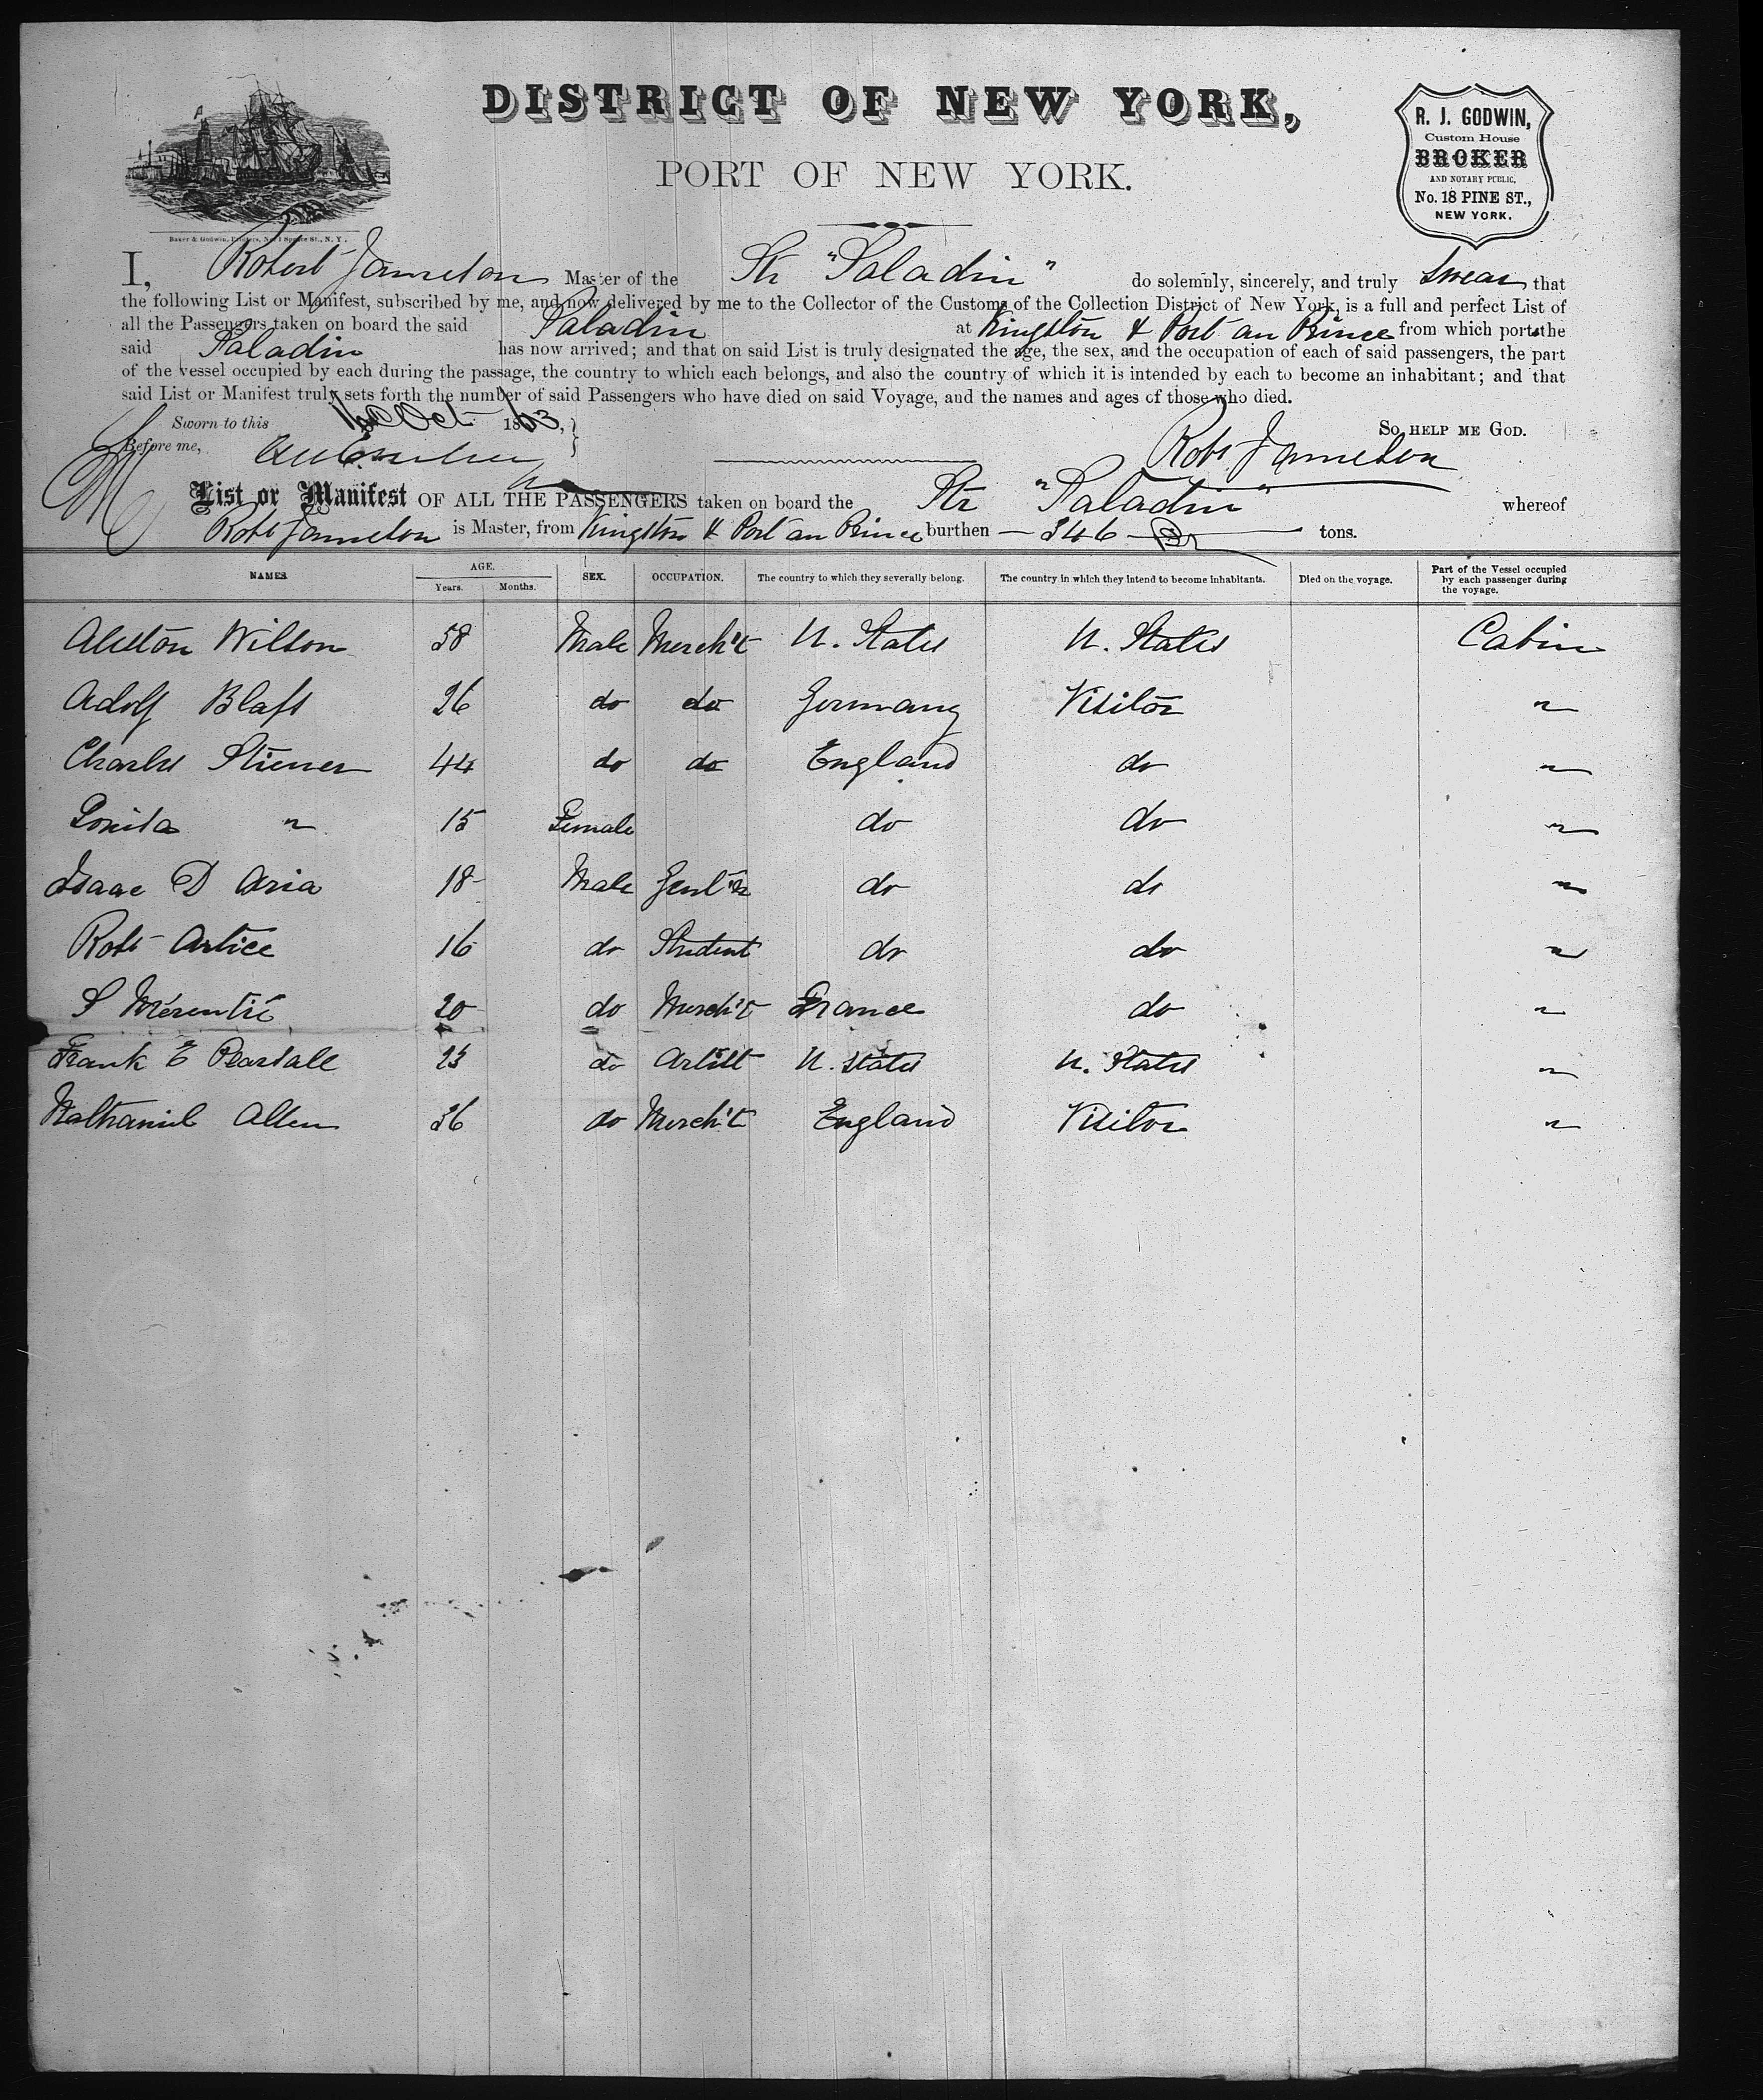 DISTRICT OF NEW YORK,
PORT OF NEW YORK.
R. J. GODWIN,
Custom House
BROKER
AND NOTARY PUBLIC,
No. 18 PINE ST.,
NEW YORK.
Baker & Godwin, Printers, No. 1 Spruce St., N. Y.
I, Robert Jameson Master of the Str "Saladin" do solemnly, sincerely, and truly swear that
the following List or Manifest, subscribed by me, and now delivered by me to the Collector of the Customs of the Collection District of New York, is a full and perfect List of
all the Passengers taken on board the said Saladin at Kingston & Port au Prince from which ports the
said Saladin has now arrived; and that on said List is truly designated the age, the sex, and the occupation of each of said passengers, the part
of the vessel occupied by each during the passage, the country to which each belongs, and also the country of which it is intended by each to become an inhabitant; and that
said List or Manifest truly sets forth the number of said Passengers who have died on said Voyage, and the names and ages of those who died.
Sworn to this 16 Oct 1863, So HELP ME GOD.
Before me, Robt Jameson
List or Manifest OF ALL THE PASSENGERS taken on board the Str "Saladin" whereof
Robt Jameson is Master, from Kingston & Port au Prince burthen 346 tons.
NAMES. AGE. Years. Months. SEX. OCCUPATION. The country to which they severally belong. The country in which they intend to become inhabitants. Died on the voyage. Part of the Vessel occupied by each passenger during the voyage.
Wilson 58 Male Merch't U. States U. States Cabin
Adolf Blass 26 do do Germany Visitor "
Charles Stiener 44 do do England do "
" 15 Female do do "
Isaac D Aria 18 Male Gent'n do do "
Robt Artice 16 do Student do do "
S 20 do Merch't France do "
Frank E Pearsall 23 do Artist U. States U. States "
Nathaniel Allen 36 do Merch't England Visitor "